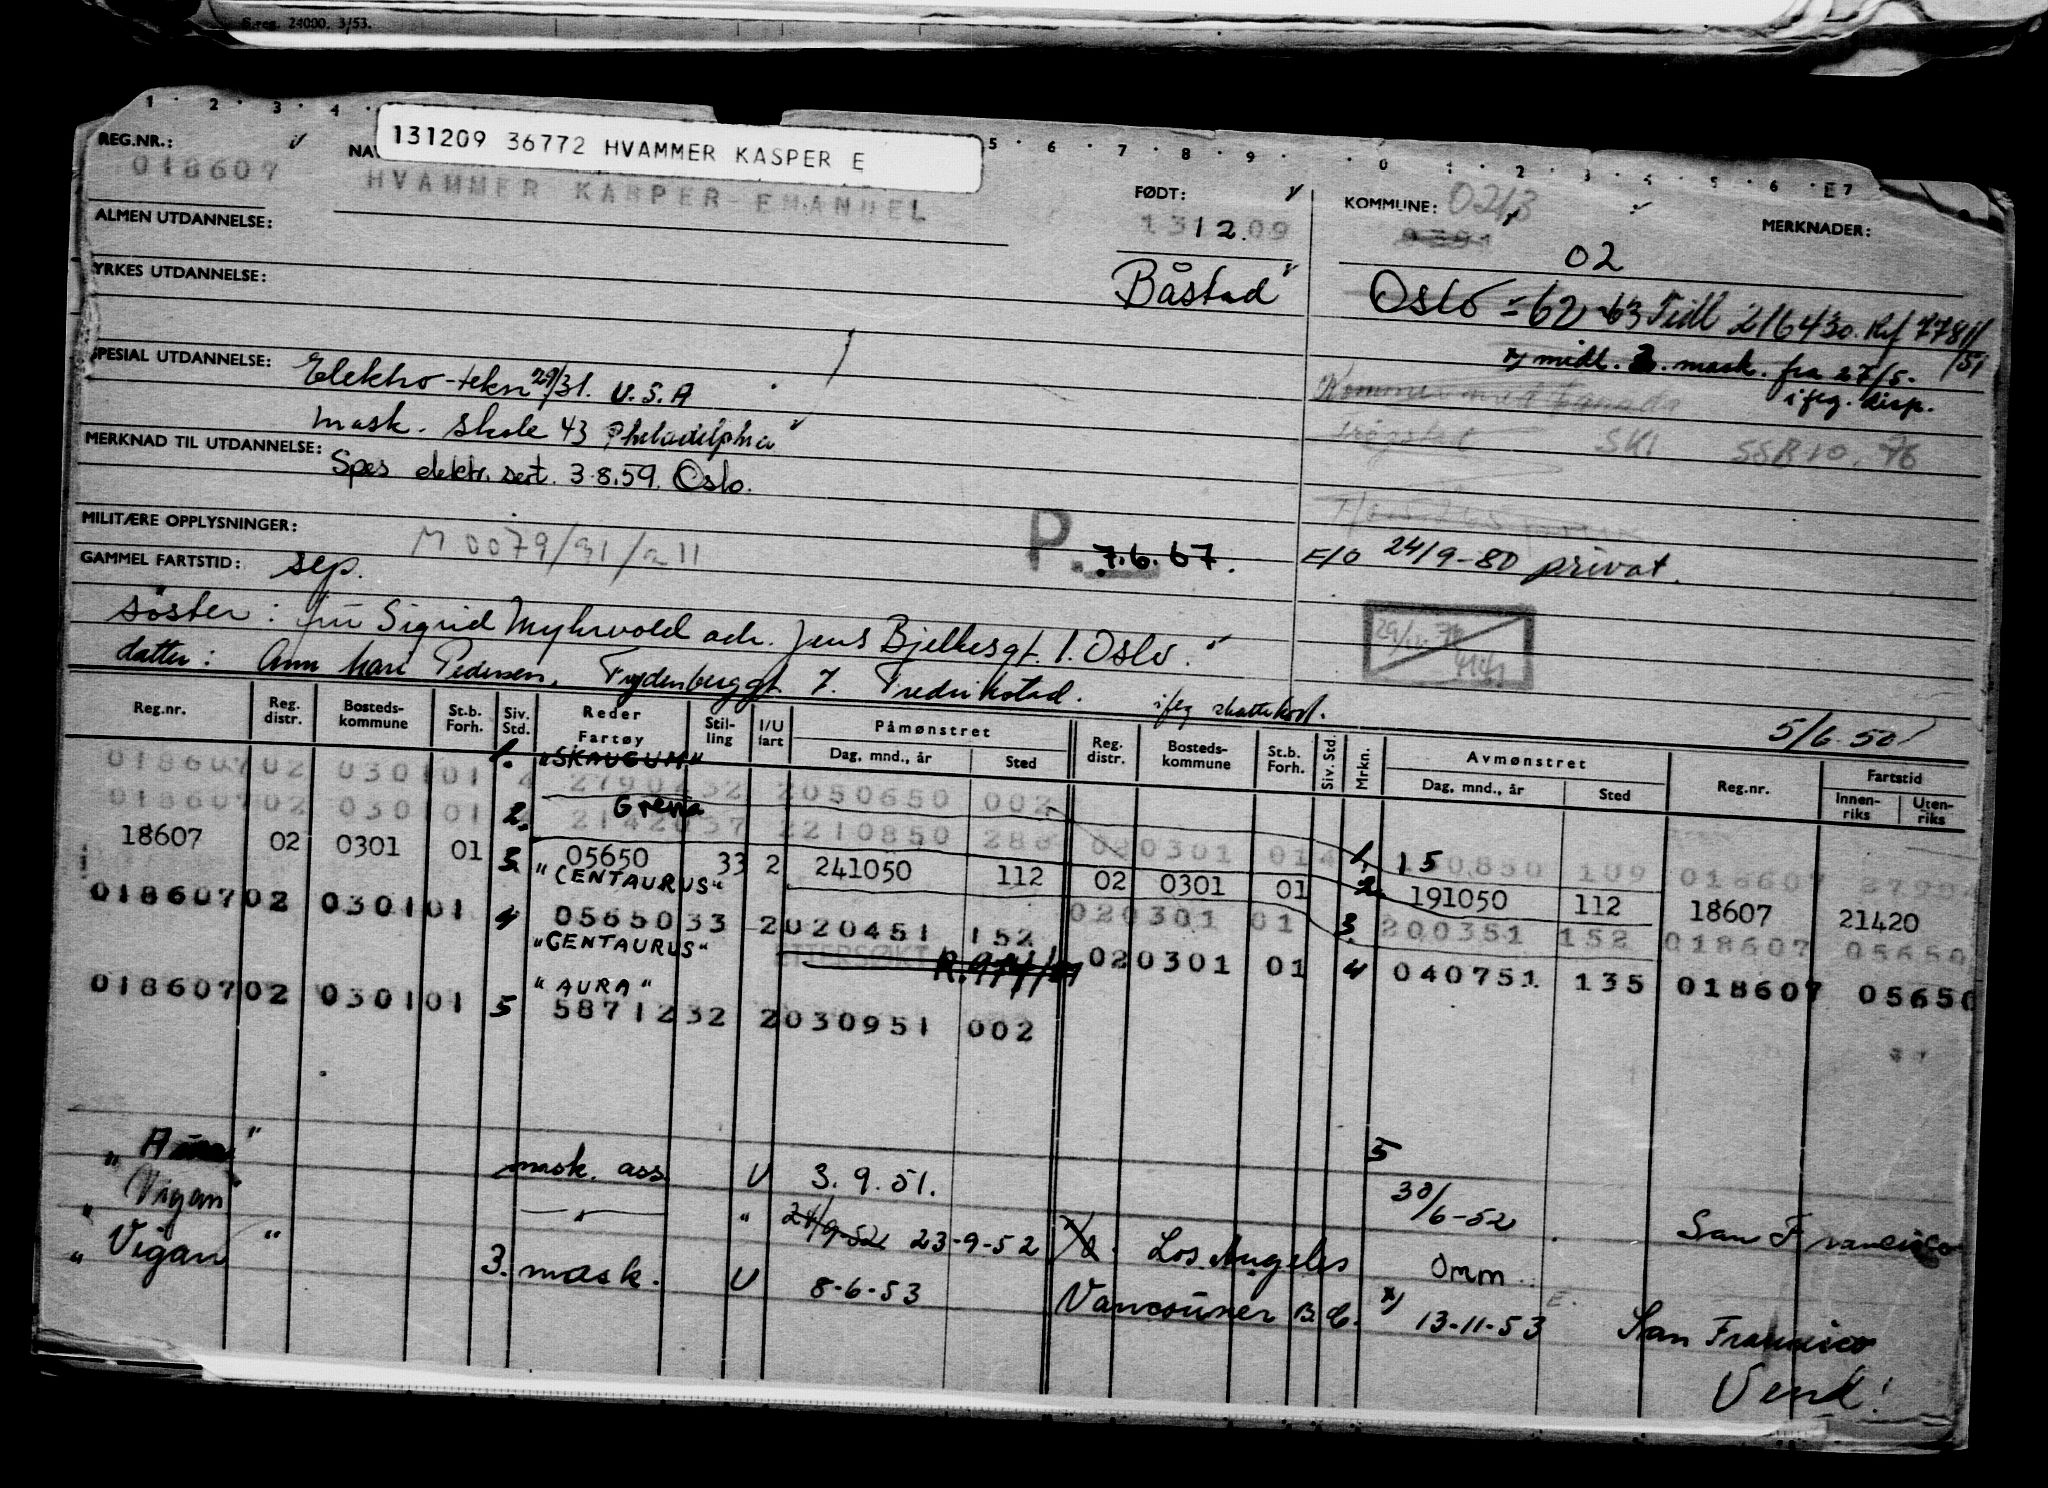 S.reg. 24000. 3/53.
1 · 2 · 3 · 4 · 5 · 6 · 7 · 8 · 9 · · 0 1 · 2 · 3 · 4 · 5 · 6 · E7
131209 36772 HVAMMER KASPER E
REG.NR.:
018607
HVAMMER KASPER EMANUEL
FØDT:
1312.09
KOMMUNE: 0213
MERKNADER:
ALMEN UTDANNELSE:
02
YRKES UTDANNELSE:
Båstad
Oslo -62 -63 Tidl 216430. Ref 7781/51
SPESIAL UTDANNELSE: Elektro-tekn 29/31. U.S.A
x) midl. 2. mask. fra 27/5-
i flg. disp.
mask. skole 43 Philadelphia
Trøgstad SKI SSB 10. 76
MERKNAD TIL UTDANNELSE: Spes elektr. sert. 3.8.59. Oslo.
MILITÆRE OPPLYSNINGER: M 0079/31/a 11
P. 7.6.67.
E/O 24/9-80 privat.
GAMMEL FARTSTID: sep.
søster: fru Sigrid Myhrvold adr. Jens Bjelkesgt. 1. Oslo.
datter: Ann Mari Pedersen, Frydenberggt 7. Fredrikstad. i flg skattekort.
5/6.50
Reg.nr. Reg. distr. Bosteds-kommune St.b. Forh. Siv. Std. Reder Fartøy Stil-ling I/U fart Påmønstret Dag, mnd., år Sted Reg. distr. Bosteds-kommune St.b. Forh. Siv. Std. Mrkn. Avmønstret Dag, mnd., år Sted Reg.nr. Fartstid Innen-riks Uten-riks
1. "SKAUGUM"
018607 02 0301 01 4 27902 32 2 050650 002
2. Grena
018607 02 0301 01 4 21420 37 2 210850 288 02 0301 01 4 1. 150850 109 018607 2790
18607 02 0301 01 3. 05650 33 2 241050 112 02 0301 01 2. 191050 112 18607 21420
"CENTAURUS"
018607 02 0301 01 4 05650 33 2 020451 152 02 0301 01 3. 200351 152 018607 05650
"CENTAURUS"
ETTERSØKT 02 0301 01 4 040751 135 018607 05650
"AURA"
018607 02 0301 01 5 58712 32 2 030951 002
"Aura" mask. ass. U 3.9.51. 5 30/6-52 San Francisco
"Vigan" — " — " 24/9-52 23-9-52 Los Angeles Omm.
"Vigan" 3. mask. U 8-6-53 Vancouver B.C. x) 13-11-53 San Francisco
Vend!